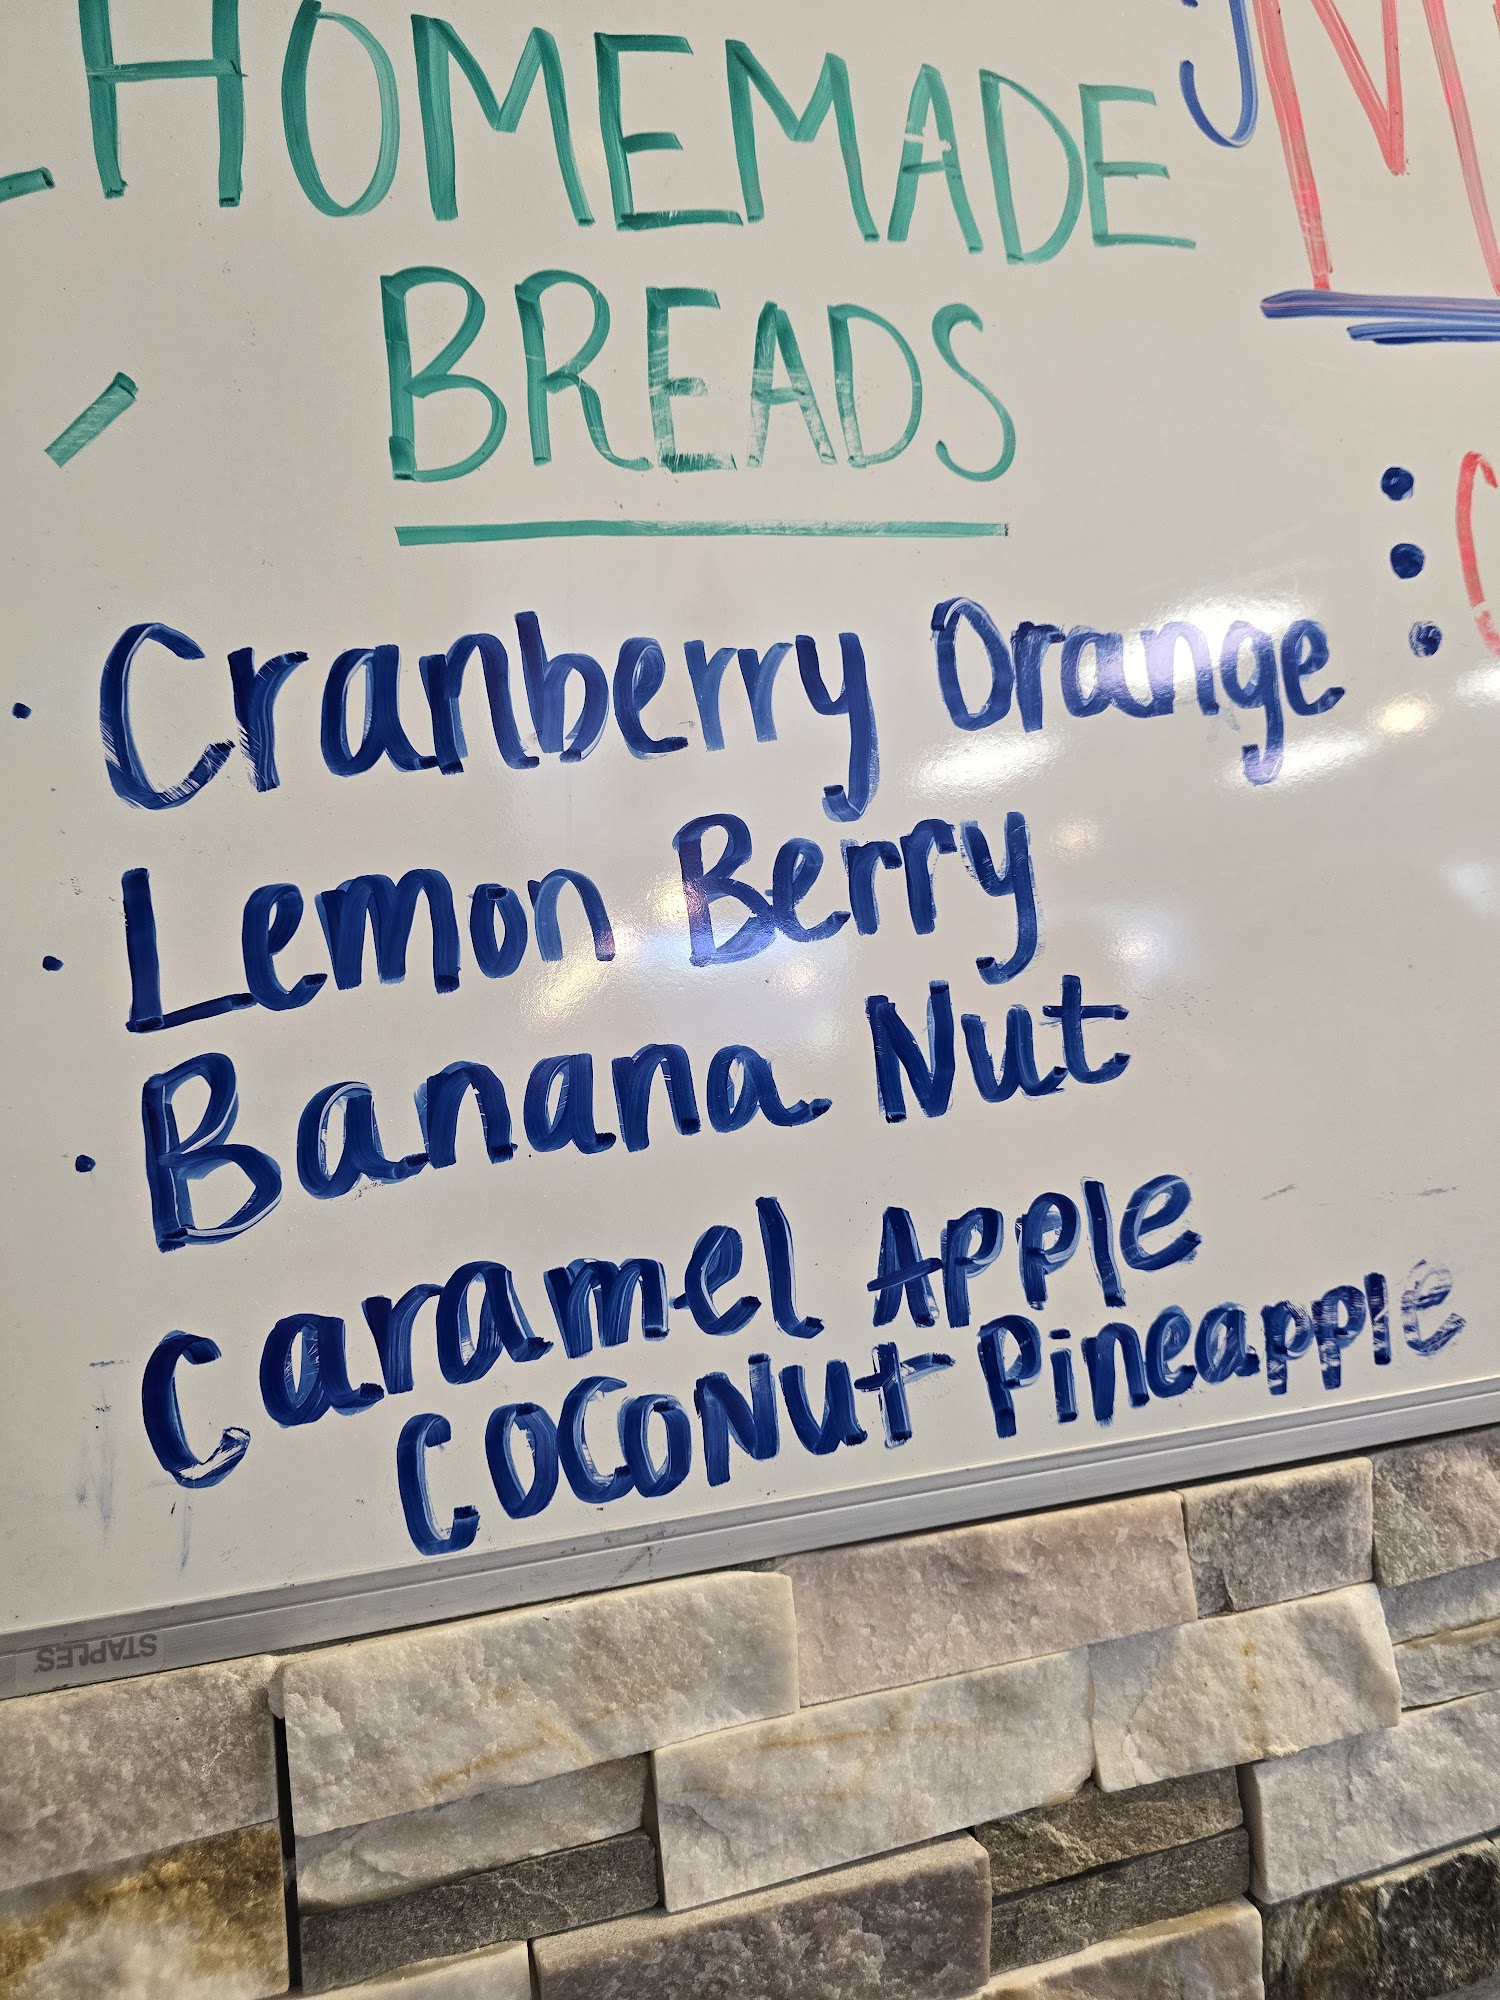 HOMEMADE
BREADS
· Cranberry Orange
· Lemon Berry
· Banana Nut
Caramel Apple
Coconut Pineapple
STAPLES